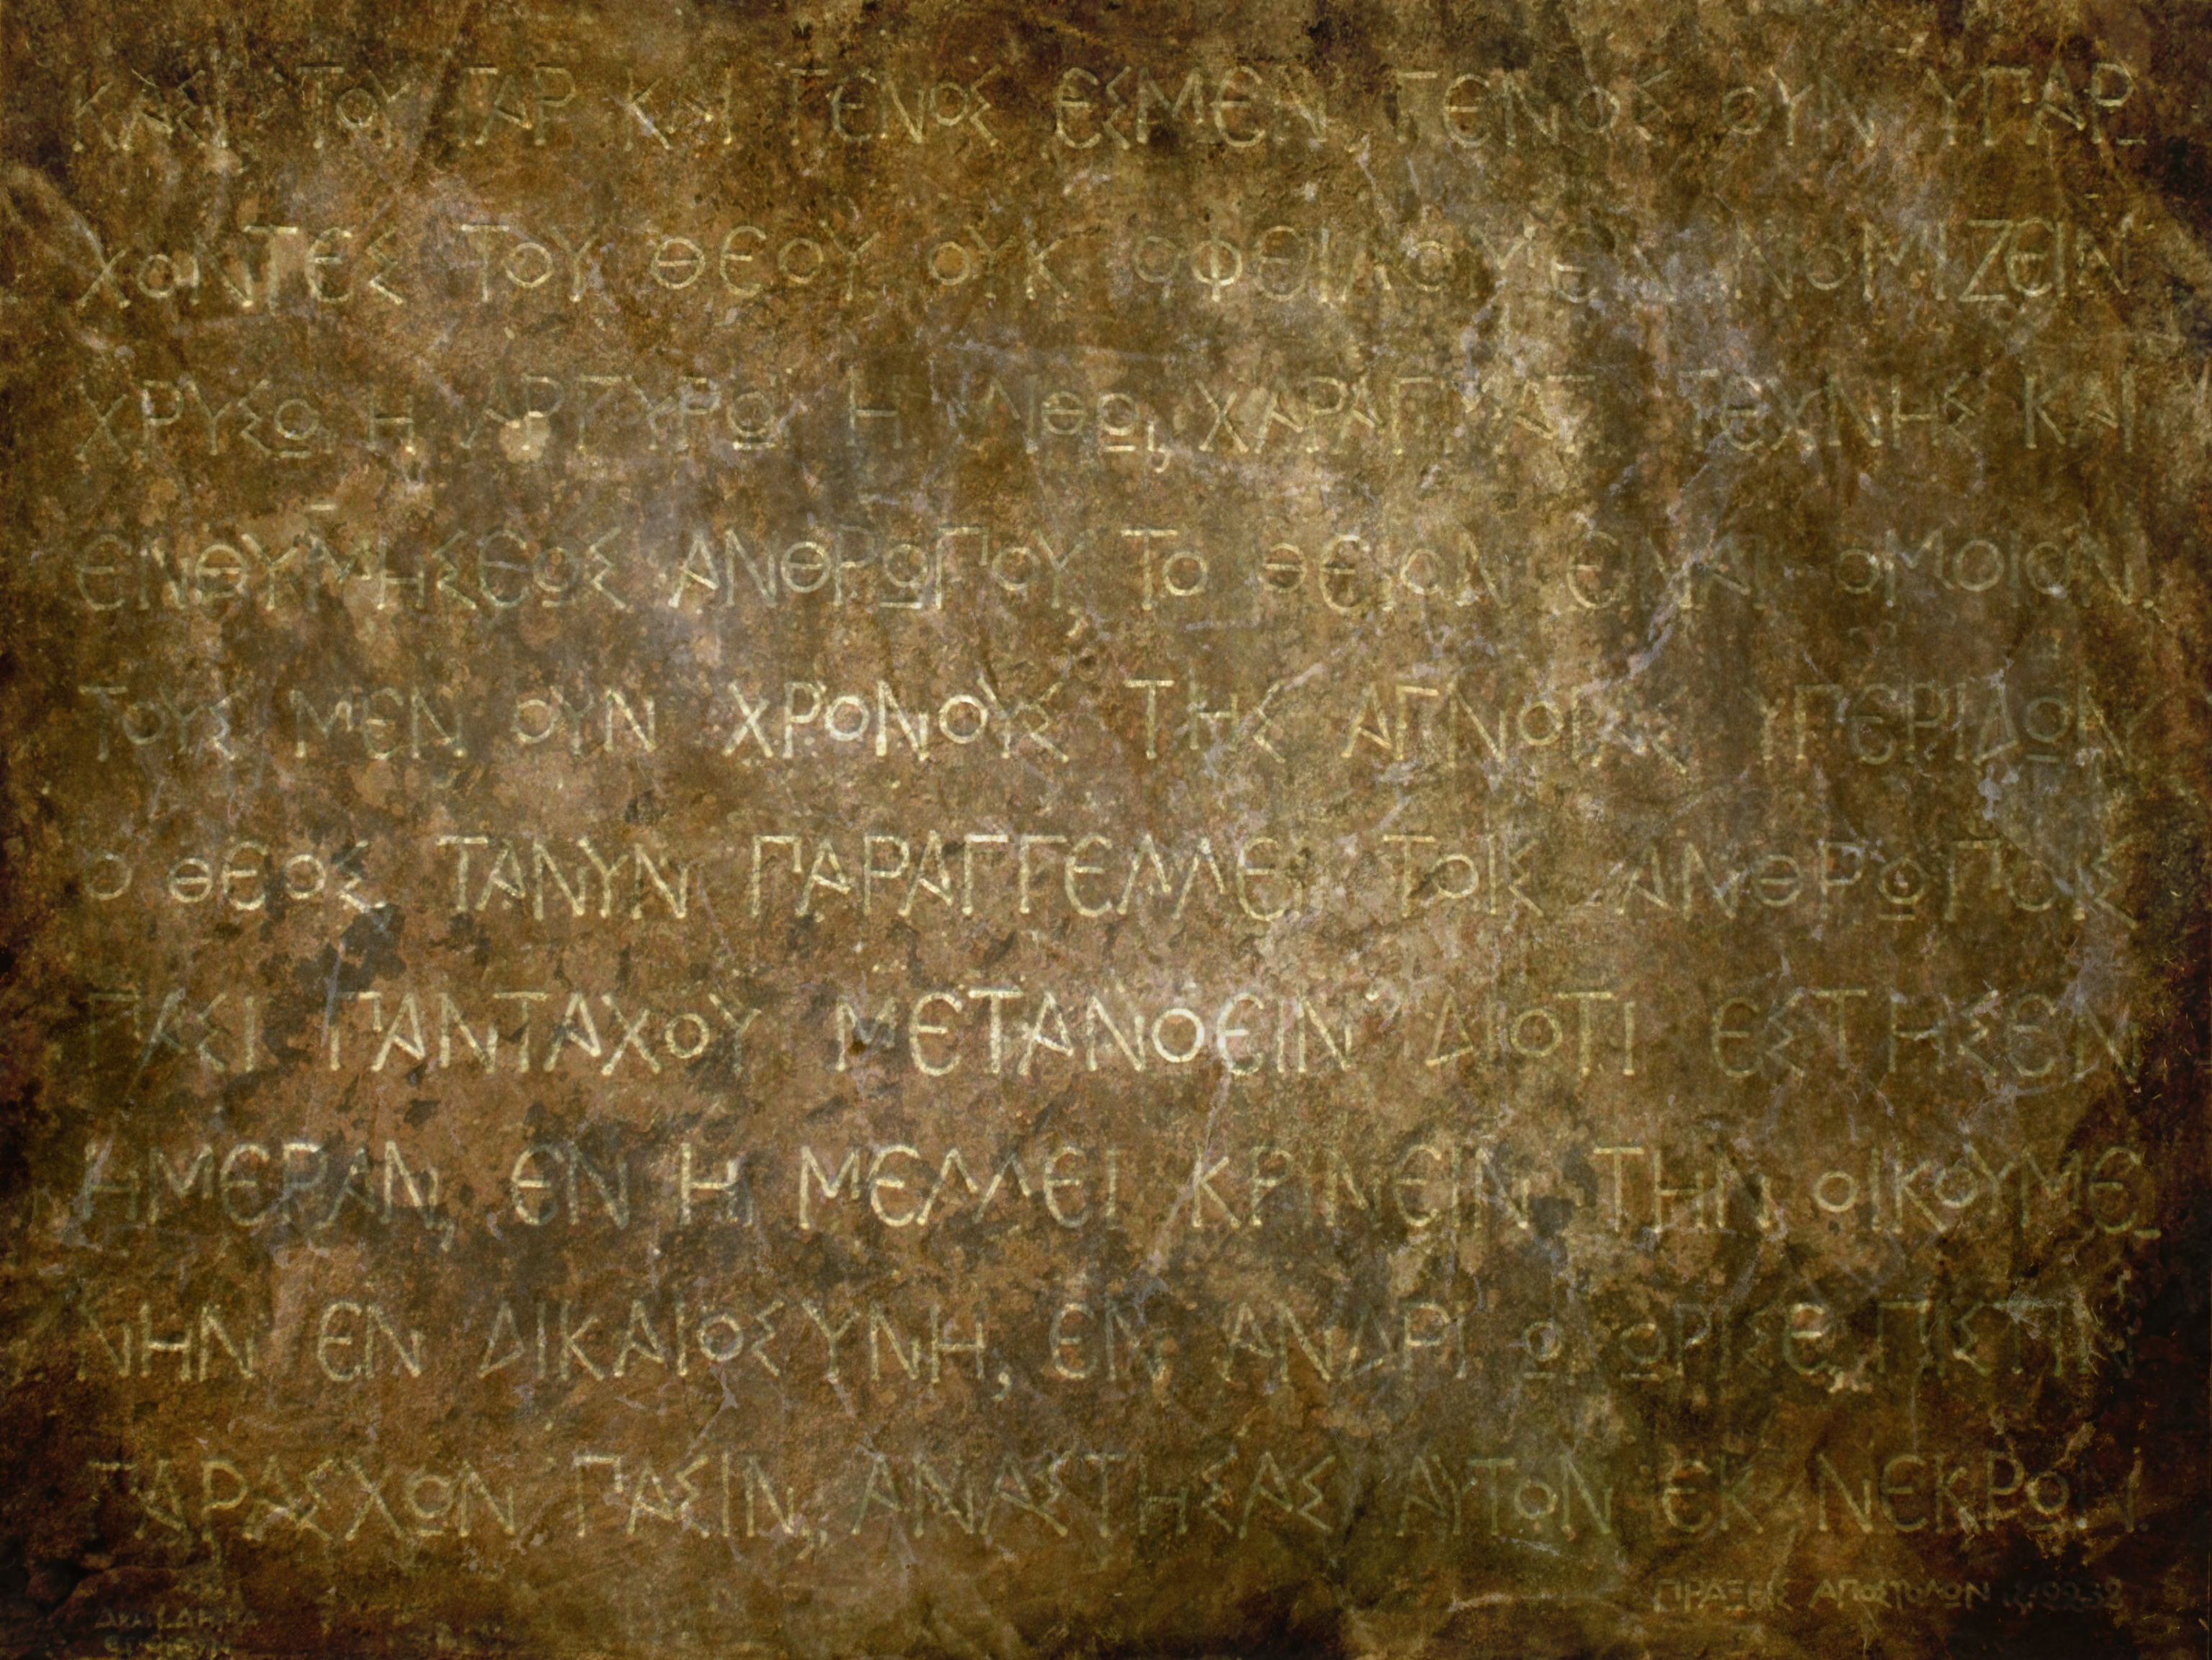 ΤΟΥ ΓΑΡ ΚΑΙ ΓΕΝΟΣ ΕΣΜΕΝ. ΓΕΝΟΣ ΟΥΝ ΥΠΑΡ-
ΧΟΝΤΕΣ ΤΟΥ ΘΕΟΥ ΟΥΚ ΟΦΕΙΛΟΜΕΝ ΝΟΜΙΖΕΙΝ
ΧΡΥΣΩ Η ΑΡΓΥΡΩ Η ΛΙΘΩ, ΧΑΡΑΓΜΑΤΙ ΤΕΧΝΗΣ ΚΑΙ
ΕΝΘΥΜΗΣΕΩΣ ΑΝΘΡΩΠΟΥ ΤΟ ΘΕΙΟΝ ΕΙΝΑΙ ΟΜΟΙΟΝ.
ΤΟΥΣ ΜΕΝ ΟΥΝ ΧΡΟΝΟΥΣ ΤΗΣ ΑΓΝΟΙΑΣ ΥΠΕΡΙΔΩΝ
Ο ΘΕΟΣ ΤΑΝΥΝ ΠΑΡΑΓΓΕΛΛΕΙ ΤΟΙΣ ΑΝΘΡΩΠΟΙΣ
ΠΑΣΙ ΠΑΝΤΑΧΟΥ ΜΕΤΑΝΟΕΙΝ ΔΙΟΤΙ ΕΣΤΗΣΕΝ
ΗΜΕΡΑΝ, ΕΝ Η ΜΕΛΛΕΙ ΚΡΙΝΕΙΝ ΤΗΝ ΟΙΚΟΥΜΕ-
ΝΗΝ ΕΝ ΔΙΚΑΙΟΣΥΝΗ, ΕΝ ΑΝΔΡΙ Ω ΩΡΙΣΕ, ΠΙΣΤΙΝ
ΠΑΡΑΣΧΩΝ ΠΑΣΙΝ, ΑΝΑΣΤΗΣΑΣ ΑΥΤΟΝ ΕΚ ΝΕΚΡΩΝ.
ΠΡΑΞΕΙΣ ΑΠΟΣΤΟΛΩΝ